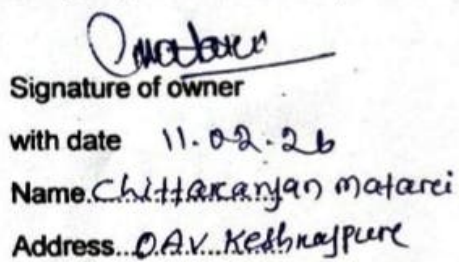 Signature of owner
with date 11.02.26
Name. Chittaranjan matarei
Address... O.A.V. Keshnajpure